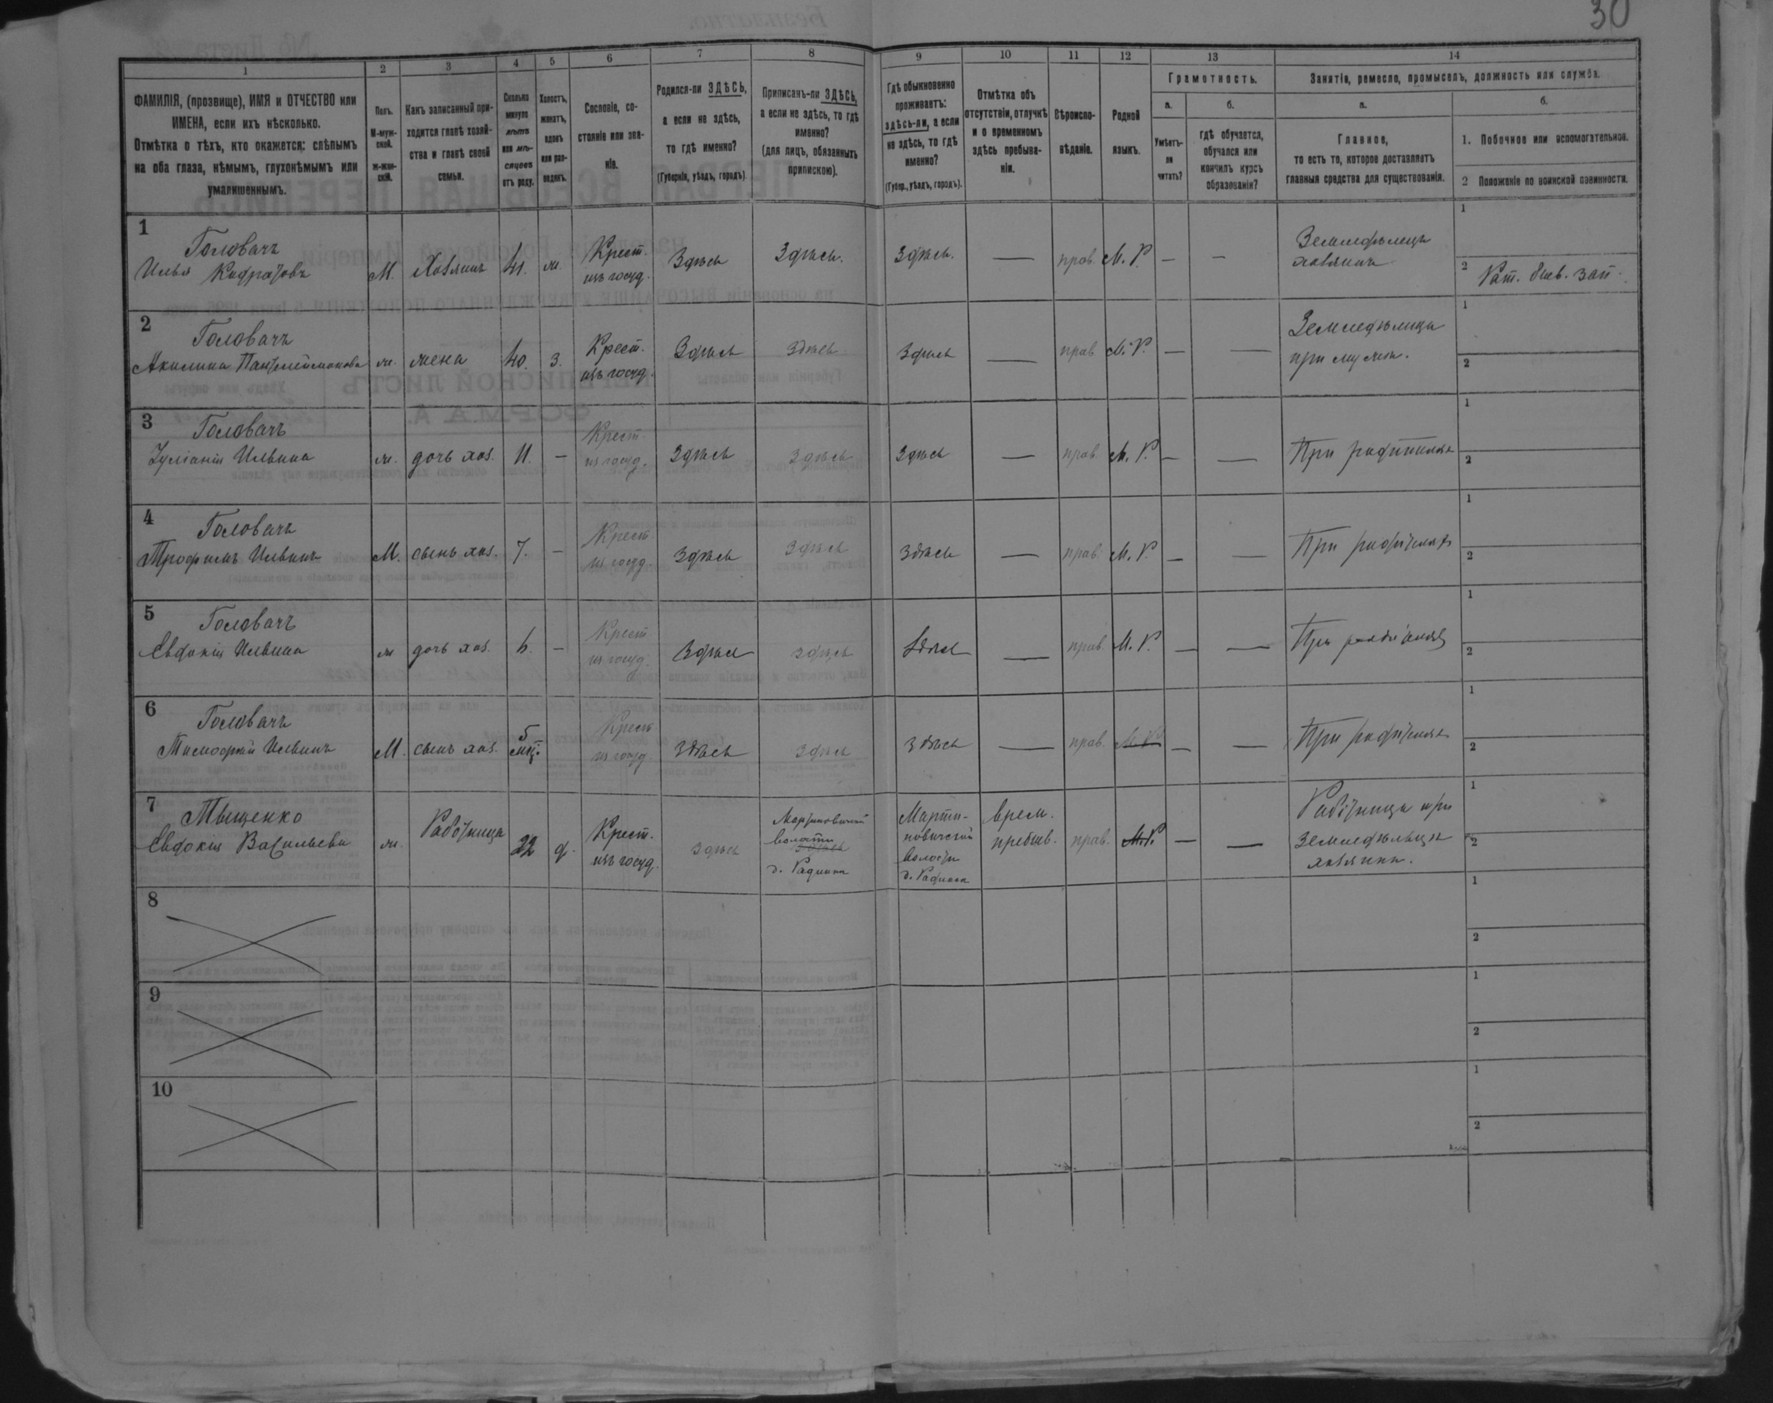 30
1
2
3
4
5
6
7
8
9
10
11
12
13
14
ФАМИЛІЯ, (прозвище), ИМЯ и ОТЧЕСТВО или
ИМЕНА, если ихъ нѣсколько.
Отмѣтка о тѣхъ, кто окажется: слѣпымъ
на оба глаза, нѣмымъ, глухонѣмымъ или
умалишеннымъ.
Полъ.
М-муж-
ской.
Ж-жен-
скій.
Какъ записанный при-
ходится главѣ хозяй-
ства и главѣ своей
семьи.
Сколько
минуло
лѣтъ
или мѣ-
сяцевъ
отъ роду.
Холостъ,
женатъ,
вдовъ
или раз-
веденъ.
Сословіе, со-
стояніе или зва-
ніе.
Родился-ли ЗДѢСЬ,
а если не здѣсь,
то гдѣ именно?
(Губернія, уѣздъ, городъ)
Приписанъ-ли ЗДѢСЬ,
а если не здѣсь, то гдѣ
именно?
(для лицъ, обязанныхъ
припискою).
Гдѣ обыкновенно
проживаетъ:
здѣсь-ли, а если
не здѣсь, то гдѣ
именно?
(Губер., уѣздъ, городъ).
Отмѣтка объ
отсутствіи, отлучкѣ
и о временномъ
здѣсь пребыва-
ніи.
Вѣроиспо-
вѣданіе.
Родной
языкъ.
Грамотность.
а.
б.
Умѣетъ-
ли
читать?
гдѣ обучается,
обучался или
кончилъ курсъ
образованія?
Занятія, ремесло, промыселъ, должность или служба.
а.
б.
Главное,
то есть то, которое доставляетъ
главныя средства для существованія.
1. Побочное или вспомогательное.
2 Положеніе по воинской повинности.
1
Головачъ
Илья
М.
Хозяинъ
41.
ж.
Крест.
изъ госуд.
Здѣсь
Здѣсь.
Здѣсь.
—
прав
М. Р.
—
—
Земледѣлецъ
хозяинъ
1
2
Рат.
2
Головачъ
Акилина Пантелеймонова
ж.
жена
40.
З.
Крест.
изъ госуд.
Здѣсь
Здѣсь
Здѣсь
—
прав
М. Р.
—
—
Земледѣлица
при мужѣ.
1
2
3
Головачъ
Іуліанія Ильина
ж.
дочь хоз.
11.
—
Крест.
из госуд.
Здѣсь
Здѣсь
Здѣсь
—
прав
М. Р.
—
—
При родителяхъ
1
2
4
Головачъ
Трофимъ Ильинъ
М.
сынъ хоз.
7.
—
Крест
из госуд.
Здѣсь
Здѣсь
Здѣсь
—
прав
М. Р.
—
—
При родителяхъ
1
2
5
Головачъ
Евдокія Ильина
ж
дочь хоз.
—
Крест
из госуд.
Здѣсь
Здѣсь
Здѣсь
—
прав
М. Р.
—
—
При родителяхъ
1
2
6
Головачъ
Тимофей Ильинъ
М.
сынъ хоз.
5
мѣс.
Крест
из госуд
Здѣсь
Здѣсь
Здѣсь
—
прав.
М. Р.
—
—
При родителяхъ
1
2
7
Тыщенко
Евдокія Васильева
ж.
Работница
22
д.
Крест.
изъ госуд.
Здѣсь
Мартиновичской
волости
Здѣсь
д.
Марти-
новичской
волости
д.
врем.
пребыв.
прав.
М. Р.
—
—
Работница при
земледѣльцѣ
хозяинѣ.
1
2
8
1
2
9
1
2
10
1
2